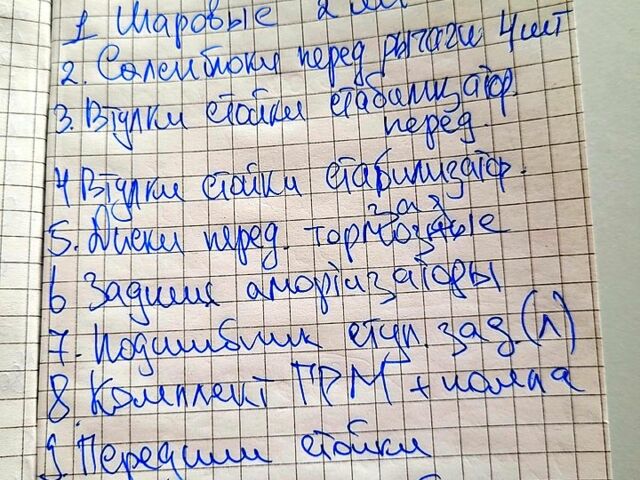 1 Шаровые 2 шт
2. Саленблоки перед рычаги 4 шт
3. Втулки стойки стабилизатор
перед.
4 Втулки стойки стабилизатор.
зад
5. Диски перед. тормозные
6 Задние амортизаторы
7. Подшибник ступ. зад. (л)
8. Комплект ГРМ + помпа
9. Передние стойки